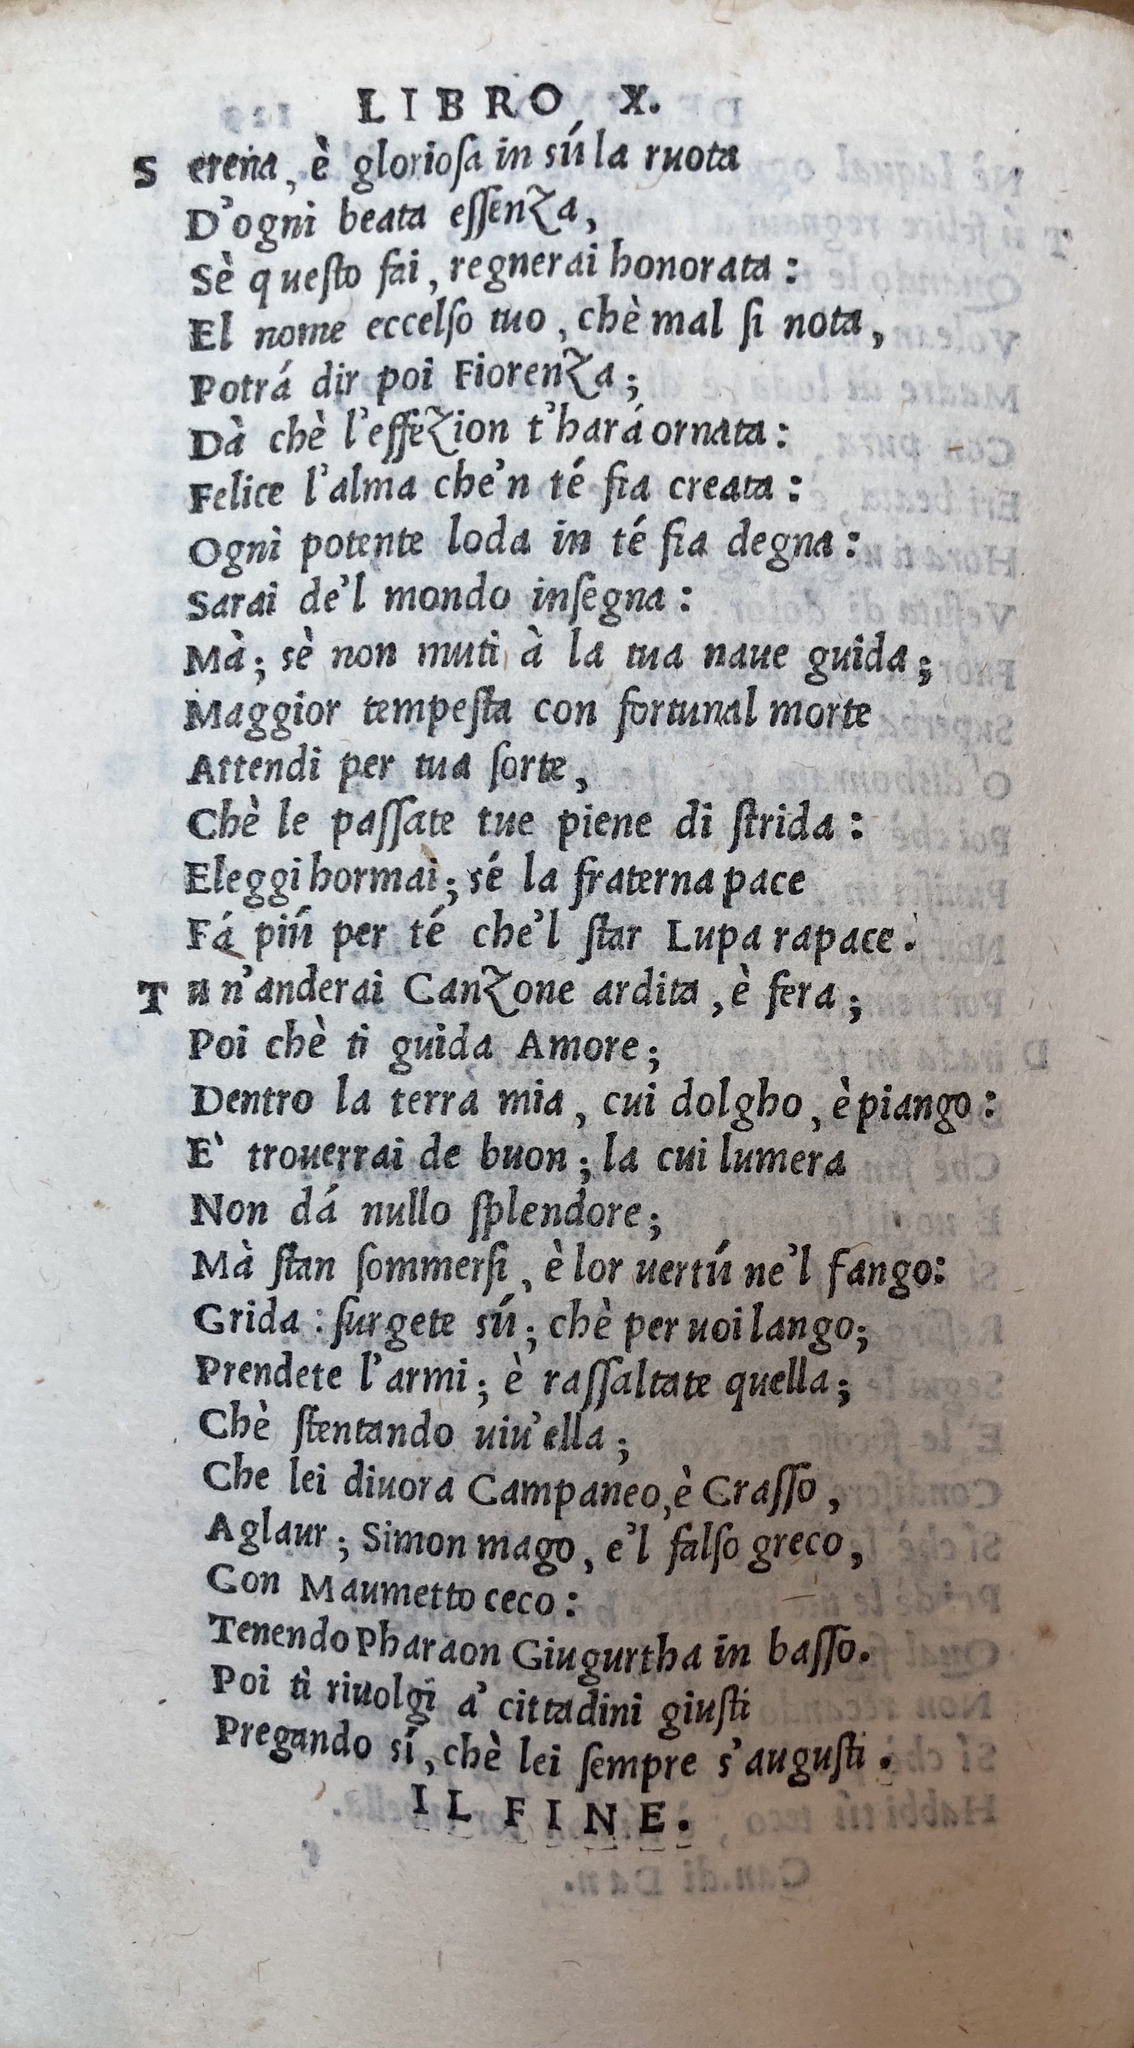 LIBRO X.
S erena, è gloriosa in sú la ruota
D'ogni beata essenza,
Sè questo fai, regnerai honorata:
El nome eccelso tuo, chè mal si nota,
Potrá dir poi Fiorenza;
Dà chè l'effezion t'hará ornata:
Felice l'alma che'n té fia creata:
Ogni potente loda in té fia degna:
Sarai de'l mondo insegna:
Mà; sè non muti à la tua naue guida;
Maggior tempesta con fortunal morte
Attendi per tua sorte,
Chè le passate tue piene di strida:
Eleggi hormai; sé la fraterna pace
Fá piú per té che'l star Lupa rapace.
T u n'anderai Canzone ardita, è fera;
Poi chè ti guida Amore;
Dentro la terra mia, cui dolgho, è piango:
E' trouerrai de buon; la cui lumera
Non dá nullo splendore;
Mà stan sommersi, è lor uertú ne'l fango:
Grida: surgete sú; chè per uoi lango;
Prendete l'armi; è rassaltate quella;
Chè stentando uiu'ella;
Che lei diuora Campaneo, è Crasso,
Aglaur; Simon mago, e'l falso greco,
Con Maumetto ceco:
Tenendo Pharaon Giugurtha in basso.
Poi tì riuolgi a' cittadini giusti
Pregando sí, chè lei sempre s'augusti.
IL FINE.